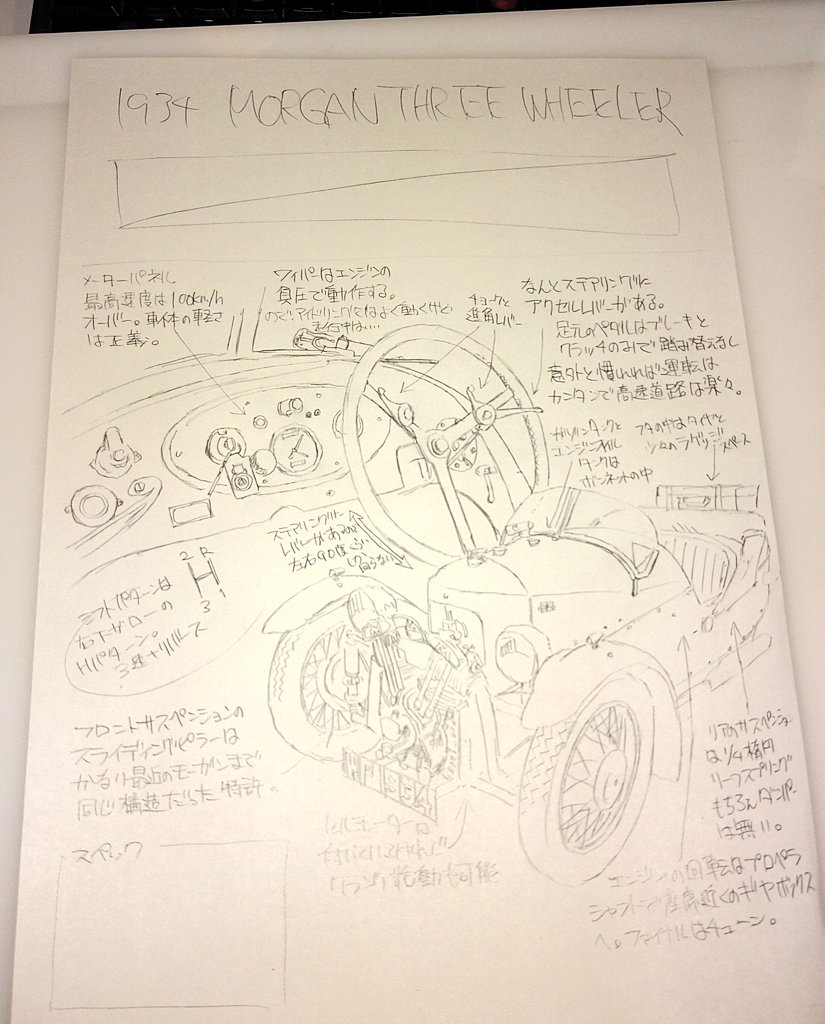 1934 MORGAN THREE WHEELER
メーターパネル
最高速度は100km/h
オーバー。車体の軽さ
は正義。
ワイパーはエンジンの
負圧で動作する。
のでアイドリングではよく動くけど
走行中は…
チョークと
進角レバー
なんとステアリングに
アクセルレバーがある。
足元のペダルはブレーキと
クラッチのみで踏み替えなし
意外と慣れれば運転は
カンタンで高速道路は楽々。
ガソリンタンクと
エンジンオイル
タンクは
ボンネットの中
フタの中はタイヤと
少々のラゲッジ
スペース
ステアリングに
レバーがあるので
左右90度くらい
しか回らない
2 R
H
3 1
シフトパターンは
右下がローの
Hパターン。
3速+リバース
フロントサスペンションの
スライディングピラーは
かなり最近のモーガンまで
同じ構造だった特許。
リアのサスペンション
は1/4楕円
リーフスプリング
もちろんダンパー
は無い。
スペック
クランク始動も可能
エンジンの回転はプロペラ
シャフトで座席近くのギヤボックス
へ。ファイナルはチェーン。